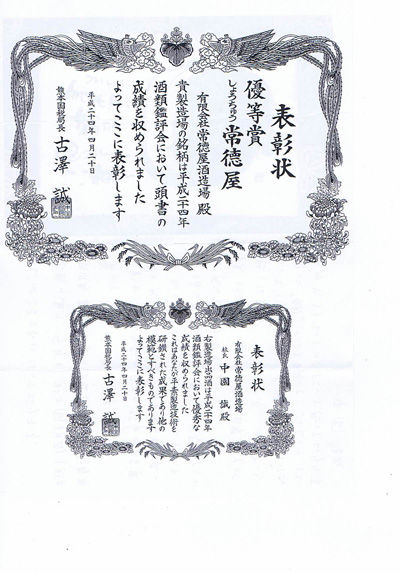 表彰状
優等賞
しょうちゅう 常徳屋
有限会社常徳屋酒造場 殿
貴製造場の銘柄は平成二十四年
酒類鑑評会において頭書の
成績を収められました
よってここに表彰します
平成二十四年四月二十日
熊本国税局長 古澤 誠
表彰状
有限会社常徳屋酒造場
杜氏 中園 誠 殿
右製造場出品酒は平成二十四年
酒類鑑評会において優秀な
成績を収められました
これはあなたが平素製造技術を
研鑽された成果であり他の
模範とすべきものであります
よってここに表彰します
平成二十四年四月二十日
熊本国税局長 古澤 誠